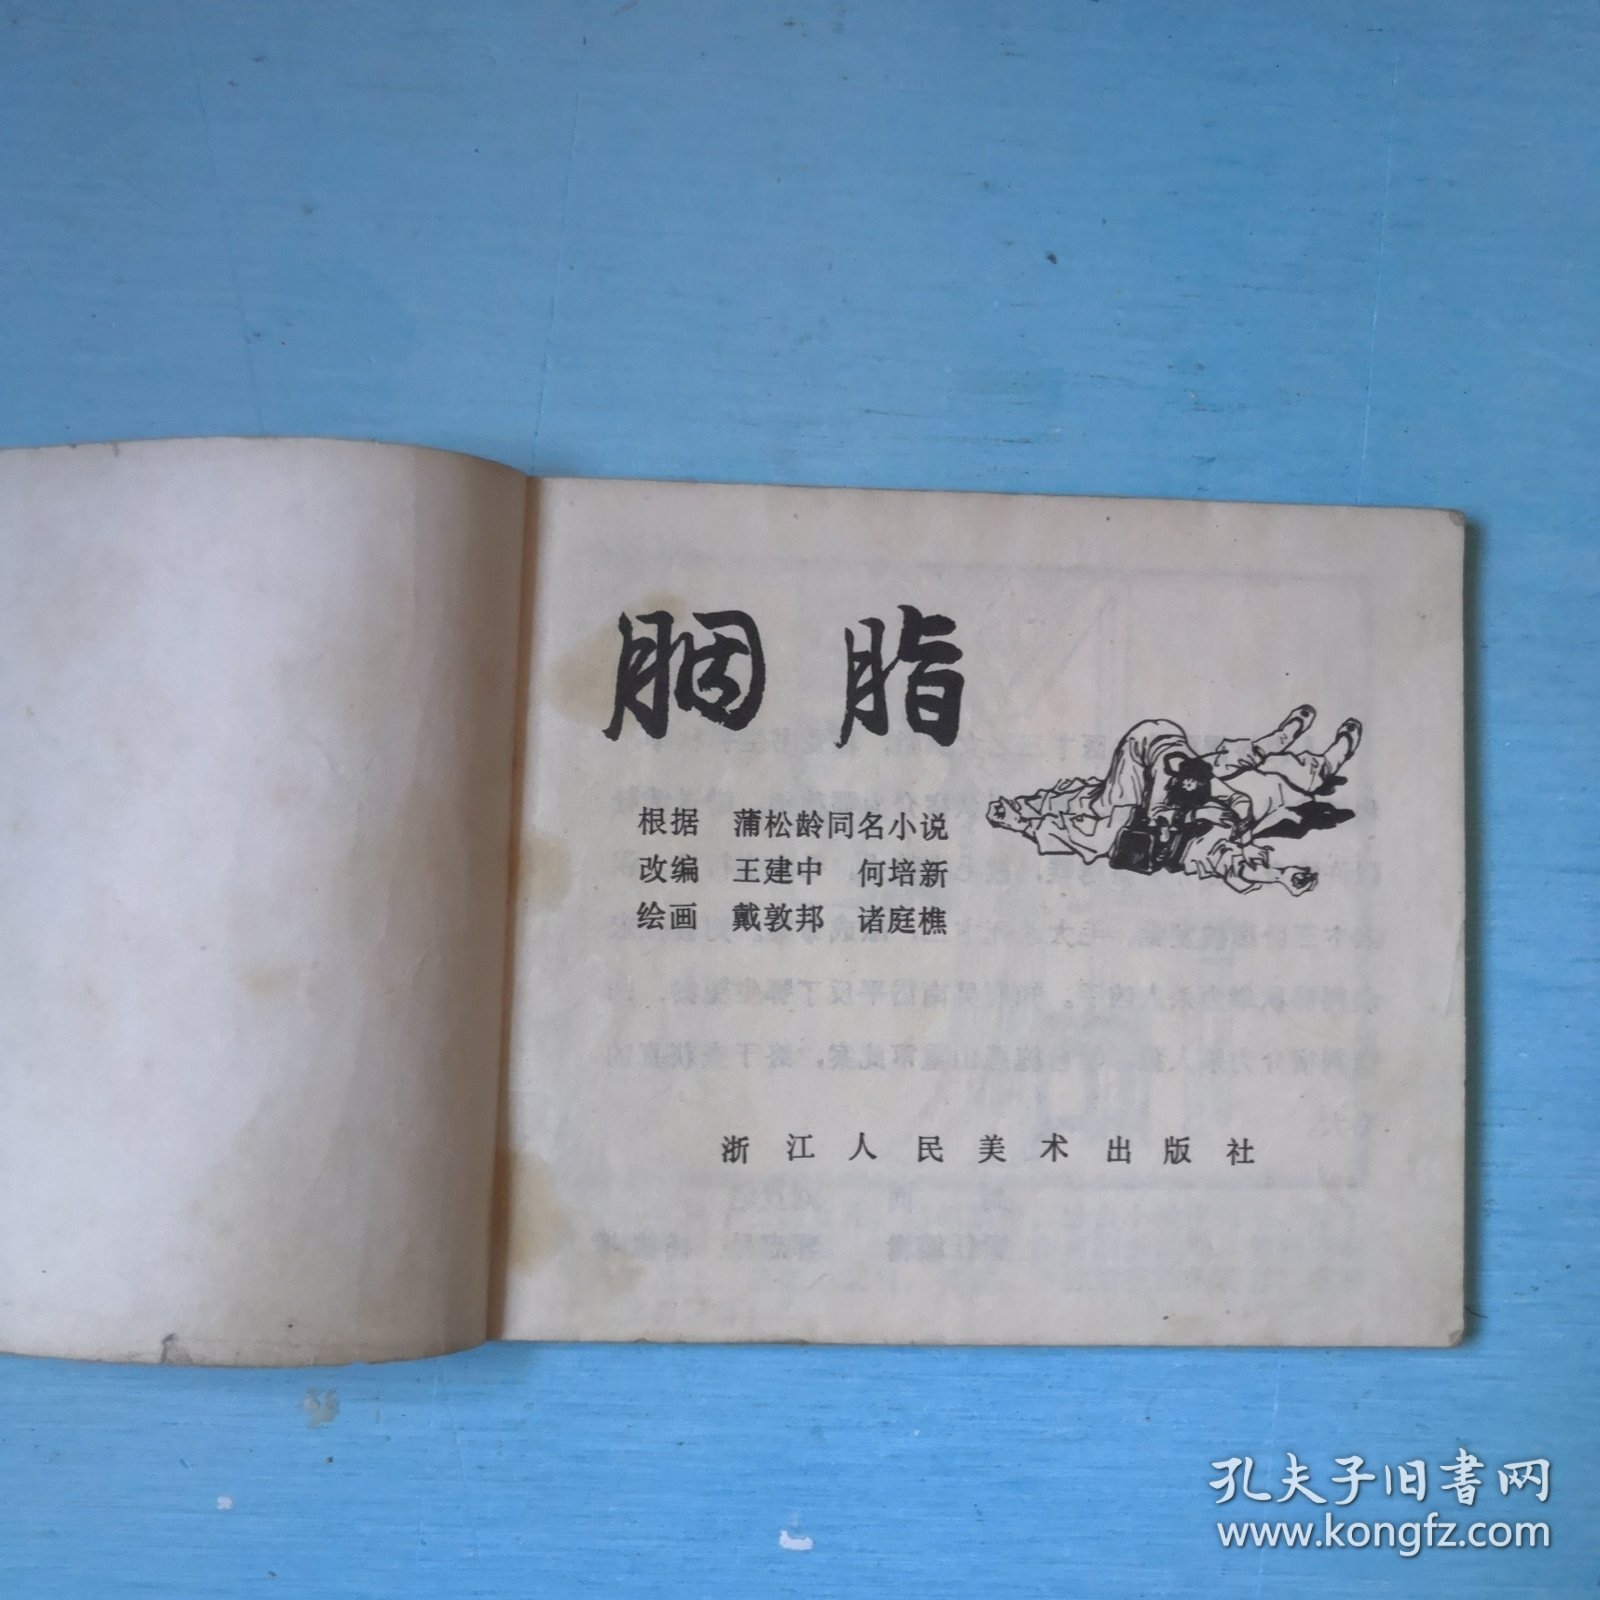 胭脂
根据 蒲松龄同名小说
改编 王建中 何培新
绘画 戴敦邦 诸庭樵
浙江人民美术出版社
孔夫子旧书网
www.kongfz.com